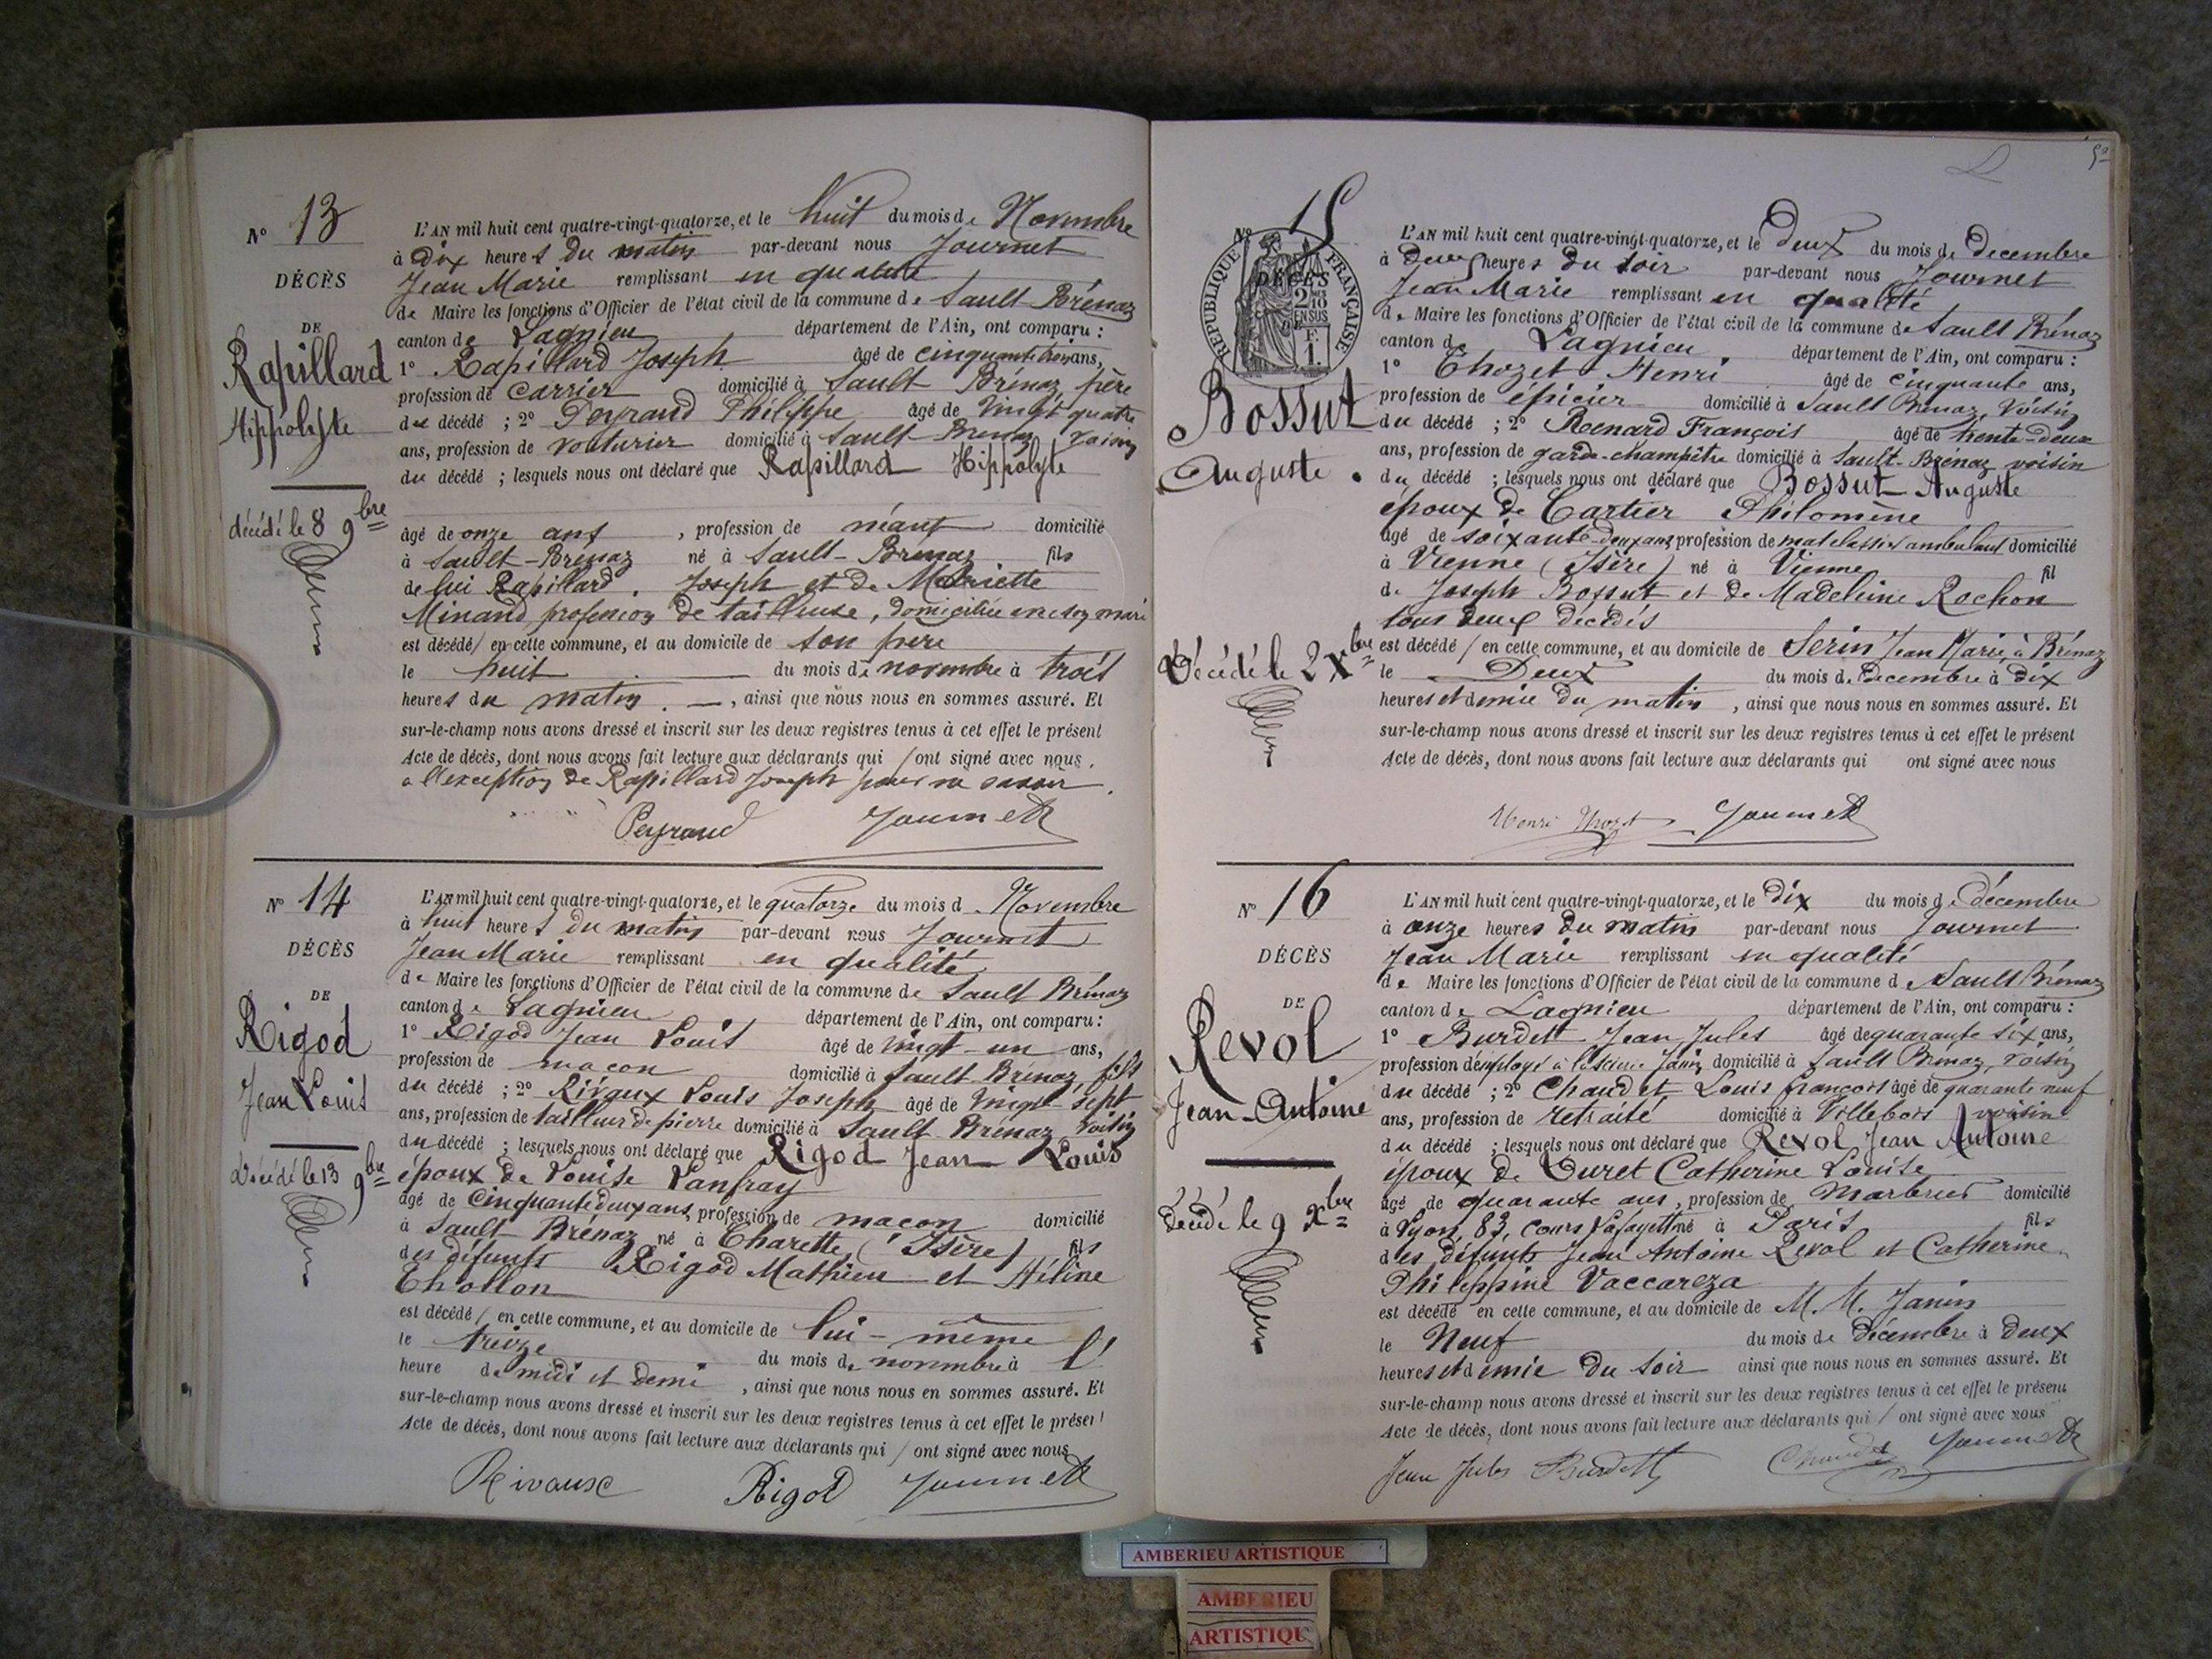 N° 13
DÉCÈS
DE
Rapillard
Hippolyte
décédé le 8 9bre
L'AN mil huit cent quatre-vingt-quatorze, et le huit du mois de Novembre
à dix heures du matin par-devant nous Journet
Jean Marie remplissant en qualité
de Maire les fonctions d'Officier de l'état civil de la commune de Sault Brénaz
canton de Lagnieu département de l'Ain, ont comparu :
1° Rapillard Joseph âgé de cinquante trois ans,
profession de carrier domicilié à Sault Brénaz, père
du décédé ; 2° Peyraud Philippe âgé de vingt quatre
ans, profession de voiturier domicilié à Sault-Brénaz voisin
du décédé ; lesquels nous ont déclaré que Rapillard Hippolyte
âgé de onze ans , profession de néant domicilié
à Sault-Brénaz né à Sault-Brénaz fils
de lui Rapillard Joseph et de Mariette
Minand profession de tailleuse, domiciliée avec son mari
est décédé / en cette commune, et au domicile de son père
le huit du mois de novembre à trois
heures du matin , ainsi que nous nous en sommes assuré. Et
sur-le-champ nous avons dressé et inscrit sur les deux registres tenus à cet effet le présent
Acte de décès, dont nous avons fait lecture aux déclarants qui / ont signé avec nous,
a l'exception de Rapillard Joseph pour ne savoir.
Peyraud Journet
N° 14
DÉCÈS
DE
Rigod
Jean Louis
Décédé le 13 9bre
L'AN mil huit cent quatre-vingt-quatorze, et le quatorze du mois d Novembre
à huit heures du matin par-devant nous Journet
Jean Marie remplissant en qualité
de Maire les fonctions d'Officier de l'état civil de la commune de Sault Brénaz
canton de Lagnieu département de l'Ain, ont comparu :
1° Rigod Jean Louis âgé de vingt-un ans,
profession de maçon domicilié à Sault Brénaz, fils
du décédé ; 2° Rivaux Louis Joseph âgé de vingt-sept
ans, profession de tailleur de pierre domicilié à Sault Brénaz voisin
du décédé ; lesquels nous ont déclaré que Rigod Jean Louis
époux de Louise Lanfray
âgé de cinquante deux ans, profession de maçon domicilié
à Sault-Brénaz né à Charette (Isère) fils
des défunts Rigod Mathieu et Héline
Chollon
est décédé / en cette commune, et au domicile de lui-même
le treize du mois de novembre à l'
heure de midi et demi , ainsi que nous nous en sommes assuré. Et
sur-le-champ nous avons dressé et inscrit sur les deux registres tenus à cet effet le présent
Acte de décès, dont nous avons fait lecture aux déclarants qui / ont signé avec nous
Rivaux Rigod Journet
N° 15
RÉPUBLIQUE FRANÇAISE
DÉCÈS
2/10
EN SUS
F.
1.
Bossut
Auguste
Décédé le 2 Xbre
L'AN mil huit cent quatre-vingt-quatorze, et le deux du mois de decembre
à deux heures du soir par-devant nous Journet
Jean Marie remplissant en qualité
de Maire les fonctions d'Officier de l'état civil de la commune de Sault Brénaz
canton de Lagnieu département de l'Ain, ont comparu :
1° Thozet Henri âgé de cinquante ans,
profession de épicier domicilié à Sault Brénaz, voisin
du décédé ; 2° Renard François âgé de trente-deux
ans, profession de garde-champêtre domicilié à Sault-Brénaz voisin
du décédé ; lesquels nous ont déclaré que Bossut Auguste
époux de Cartier Philomène
âgé de soixante-deux ans profession de matelassier ambulant domicilié
à Vienne (Isère) né à Vienne fil
de Joseph Bossut et de Madeleine Rochon
tous deux décédés
est décédé / en cette commune, et au domicile de Serin Jean Marie à Brénaz
le Deux du mois de decembre à dix
heures et demie du matin , ainsi que nous nous en sommes assuré. Et
sur-le-champ nous avons dressé et inscrit sur les deux registres tenus à cet effet le présent
Acte de décès, dont nous avons fait lecture aux déclarants qui ont signé avec nous
Henri Thozet Journet
N° 16
DÉCÈS
DE
Revol
Jean-Antoine
Décédé le 9 Xbre
L'AN mil huit cent quatre-vingt-quatorze, et le dix du mois de décembre
à onze heures du matin par-devant nous Journet
Jean Marie remplissant en qualité
de Maire les fonctions d'Officier de l'état civil de la commune d Sault Brénaz
canton de Lagnieu département de l'Ain, ont comparu :
1° Burdet Jean Jules âgé de quarante six ans,
profession d'employé à l'usine Janin domicilié à Sault Brénaz, voisin
du décédé ; 2° Chaudet Louis françois âgé de quarante neuf
ans, profession de retraité domicilié à Villebois voisin
du décédé ; lesquels nous ont déclaré que Revol Jean Antoine
époux de Curet Catherine Louise
âgé de quarante ans, profession de Marbrier domicilié
à Lyon, 83, cours Lafayette né à Paris fils
des défunts Jean Antoine Revol et Catherine
Philippine Vaccareza
est décédé en cette commune, et au domicile de M. M. Janin
le Neuf du mois de décembre à deux
heures et demie du soir ainsi que nous nous en sommes assuré. Et
sur-le-champ nous avons dressé et inscrit sur les deux registres tenus à cet effet le présent
Acte de décès, dont nous avons fait lecture aux déclarants qui / ont signé avec nous
Jean Jules Burdet Chaudet Journet
AMBERIEU ARTISTIQUE
AMBERIEU
ARTISTIQUE